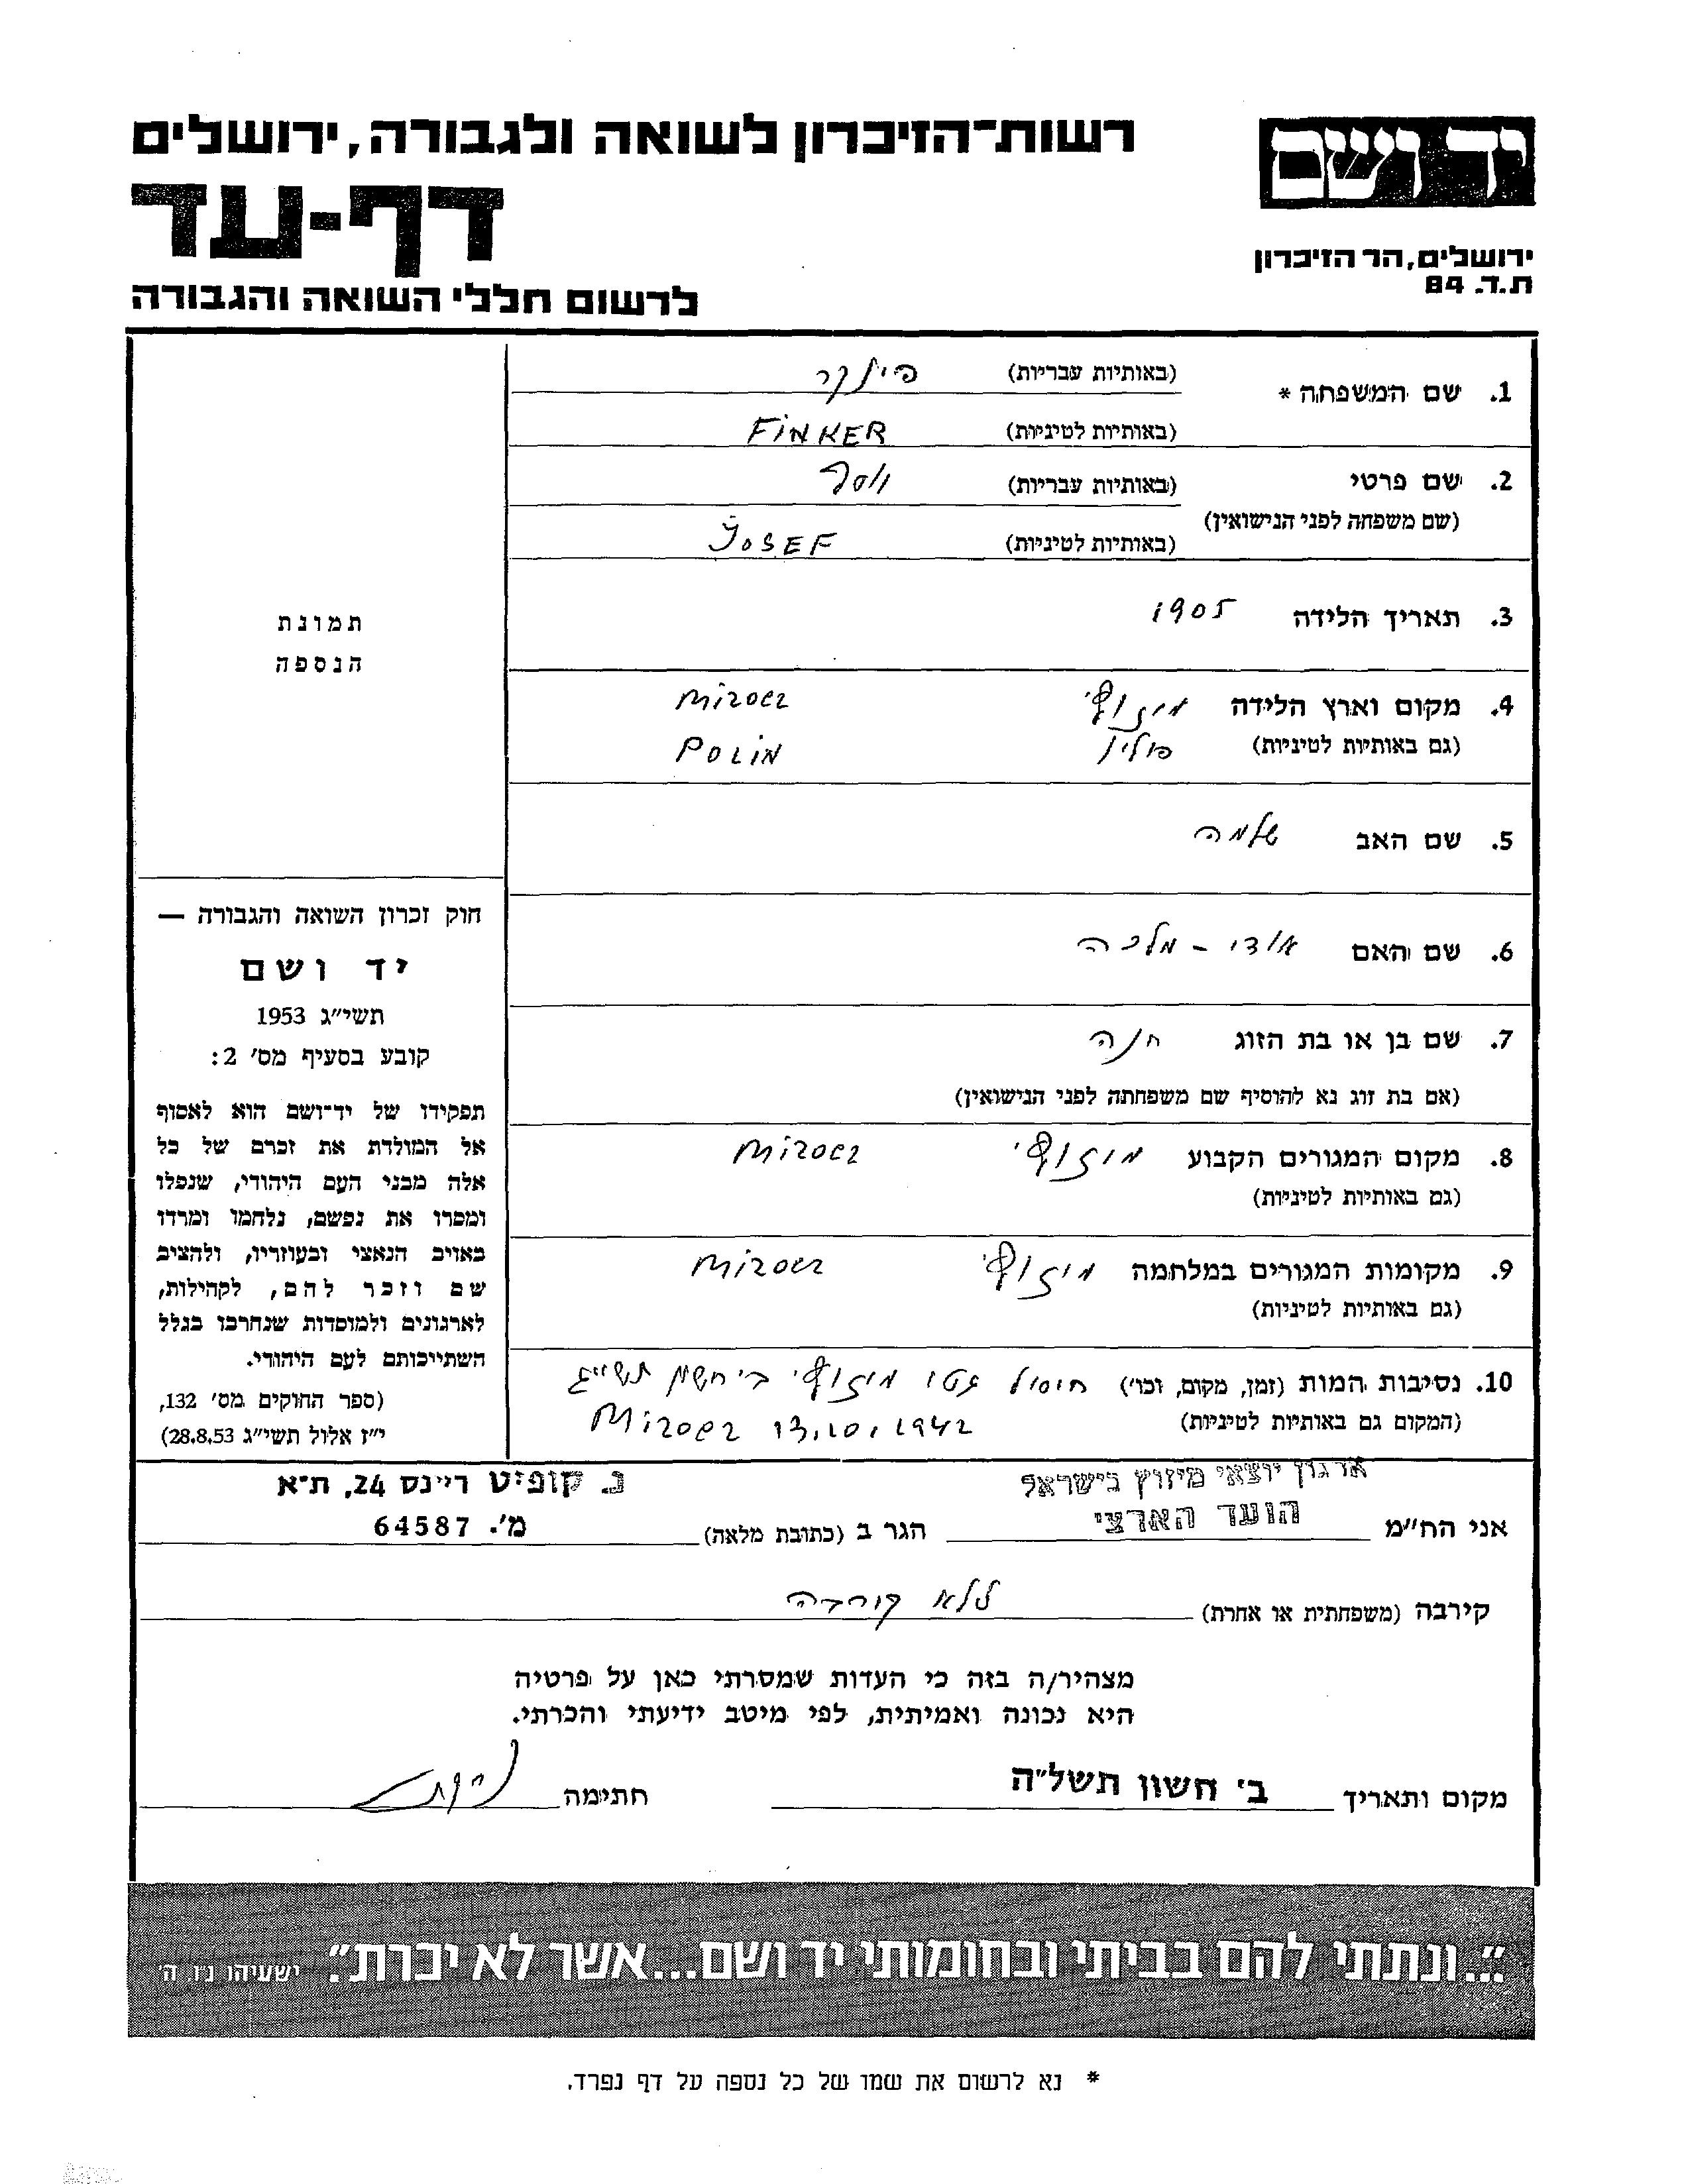 יד ושם
רשות־הזיכרון לשואה ולגבורה, ירושלים
דף-עד
ירושלים, הר הזיכרון
ת.ד. 84
לרשום חללי השואה והגבורה
1. שם המשפחה * (באותיות עבריות) פינקר
(באותיות לטיניות) FINKER
2. שם פרטי (באותיות עבריות) יוסף
(שם משפחה לפני הנישואין)
(באותיות לטיניות) JOSEF
3. תאריך הלידה 1905
4. מקום וארץ הלידה מיזוץ' MIZOCZ
(גם באותיות לטיניות) פולין POLIN
5. שם האב שלמה
6. שם האם אודי - מלכה
7. שם בן או בת הזוג חנה
(אם בת זוג נא להוסיף שם משפחתה לפני הנישואין)
8. מקום המגורים הקבוע מיזוץ' MIZOCZ
(גם באותיות לטיניות)
9. מקומות המגורים במלחמה מיזוץ' MIZOCZ
(גם באותיות לטיניות)
10. נסיבות המות (זמן, מקום, וכו') חיסול גטו מיזוץ' ב' חשון תש"ג
(המקום גם באותיות לטיניות) MIZOCZ 13.10.1942
תמונת
הנספה
חוק זכרון השואה והגבורה —
יד ושם
תשי"ג 1953
קובע בסעיף מס' 2:
תפקידו של יד־ושם הוא לאסוף
אל המולדת את זכרם של כל
אלה מבני העם היהודי, שנפלו
ומסרו את נפשם, נלחמו ומרדו
באויב הנאצי ובעוזריו, ולהציב
שם וזכר להם, לקהילות,
לארגונים ולמוסדות שנחרבו בגלל
השתייכותם לעם היהודי.
(ספר החוקים מס' 132,
י"ז אלול תשי"ג 28.8.53)
ארגון יוצאי מיזוץ בישראל נ. קופיט ריינס 24, ת־א
אני הח"מ הועד הארצי הגר ב (כתובת מלאה) מ'. 64587
קירבה (משפחתית או אחרת) ללא קורבה
מצהיר/ה בזה כי העדות שמסרתי כאן על פרטיה
היא נכונה ואמיתית, לפי מיטב ידיעתי והכרתי.
מקום ותאריך ב' חשון תשל"ה חתימה
"...ונתתי להם בביתי ובחומותי יד ושם...אשר לא יכרת". ישעיהו נ"ו, ה'
* נא לרשום את שמו של כל נספה על דף נפרד.